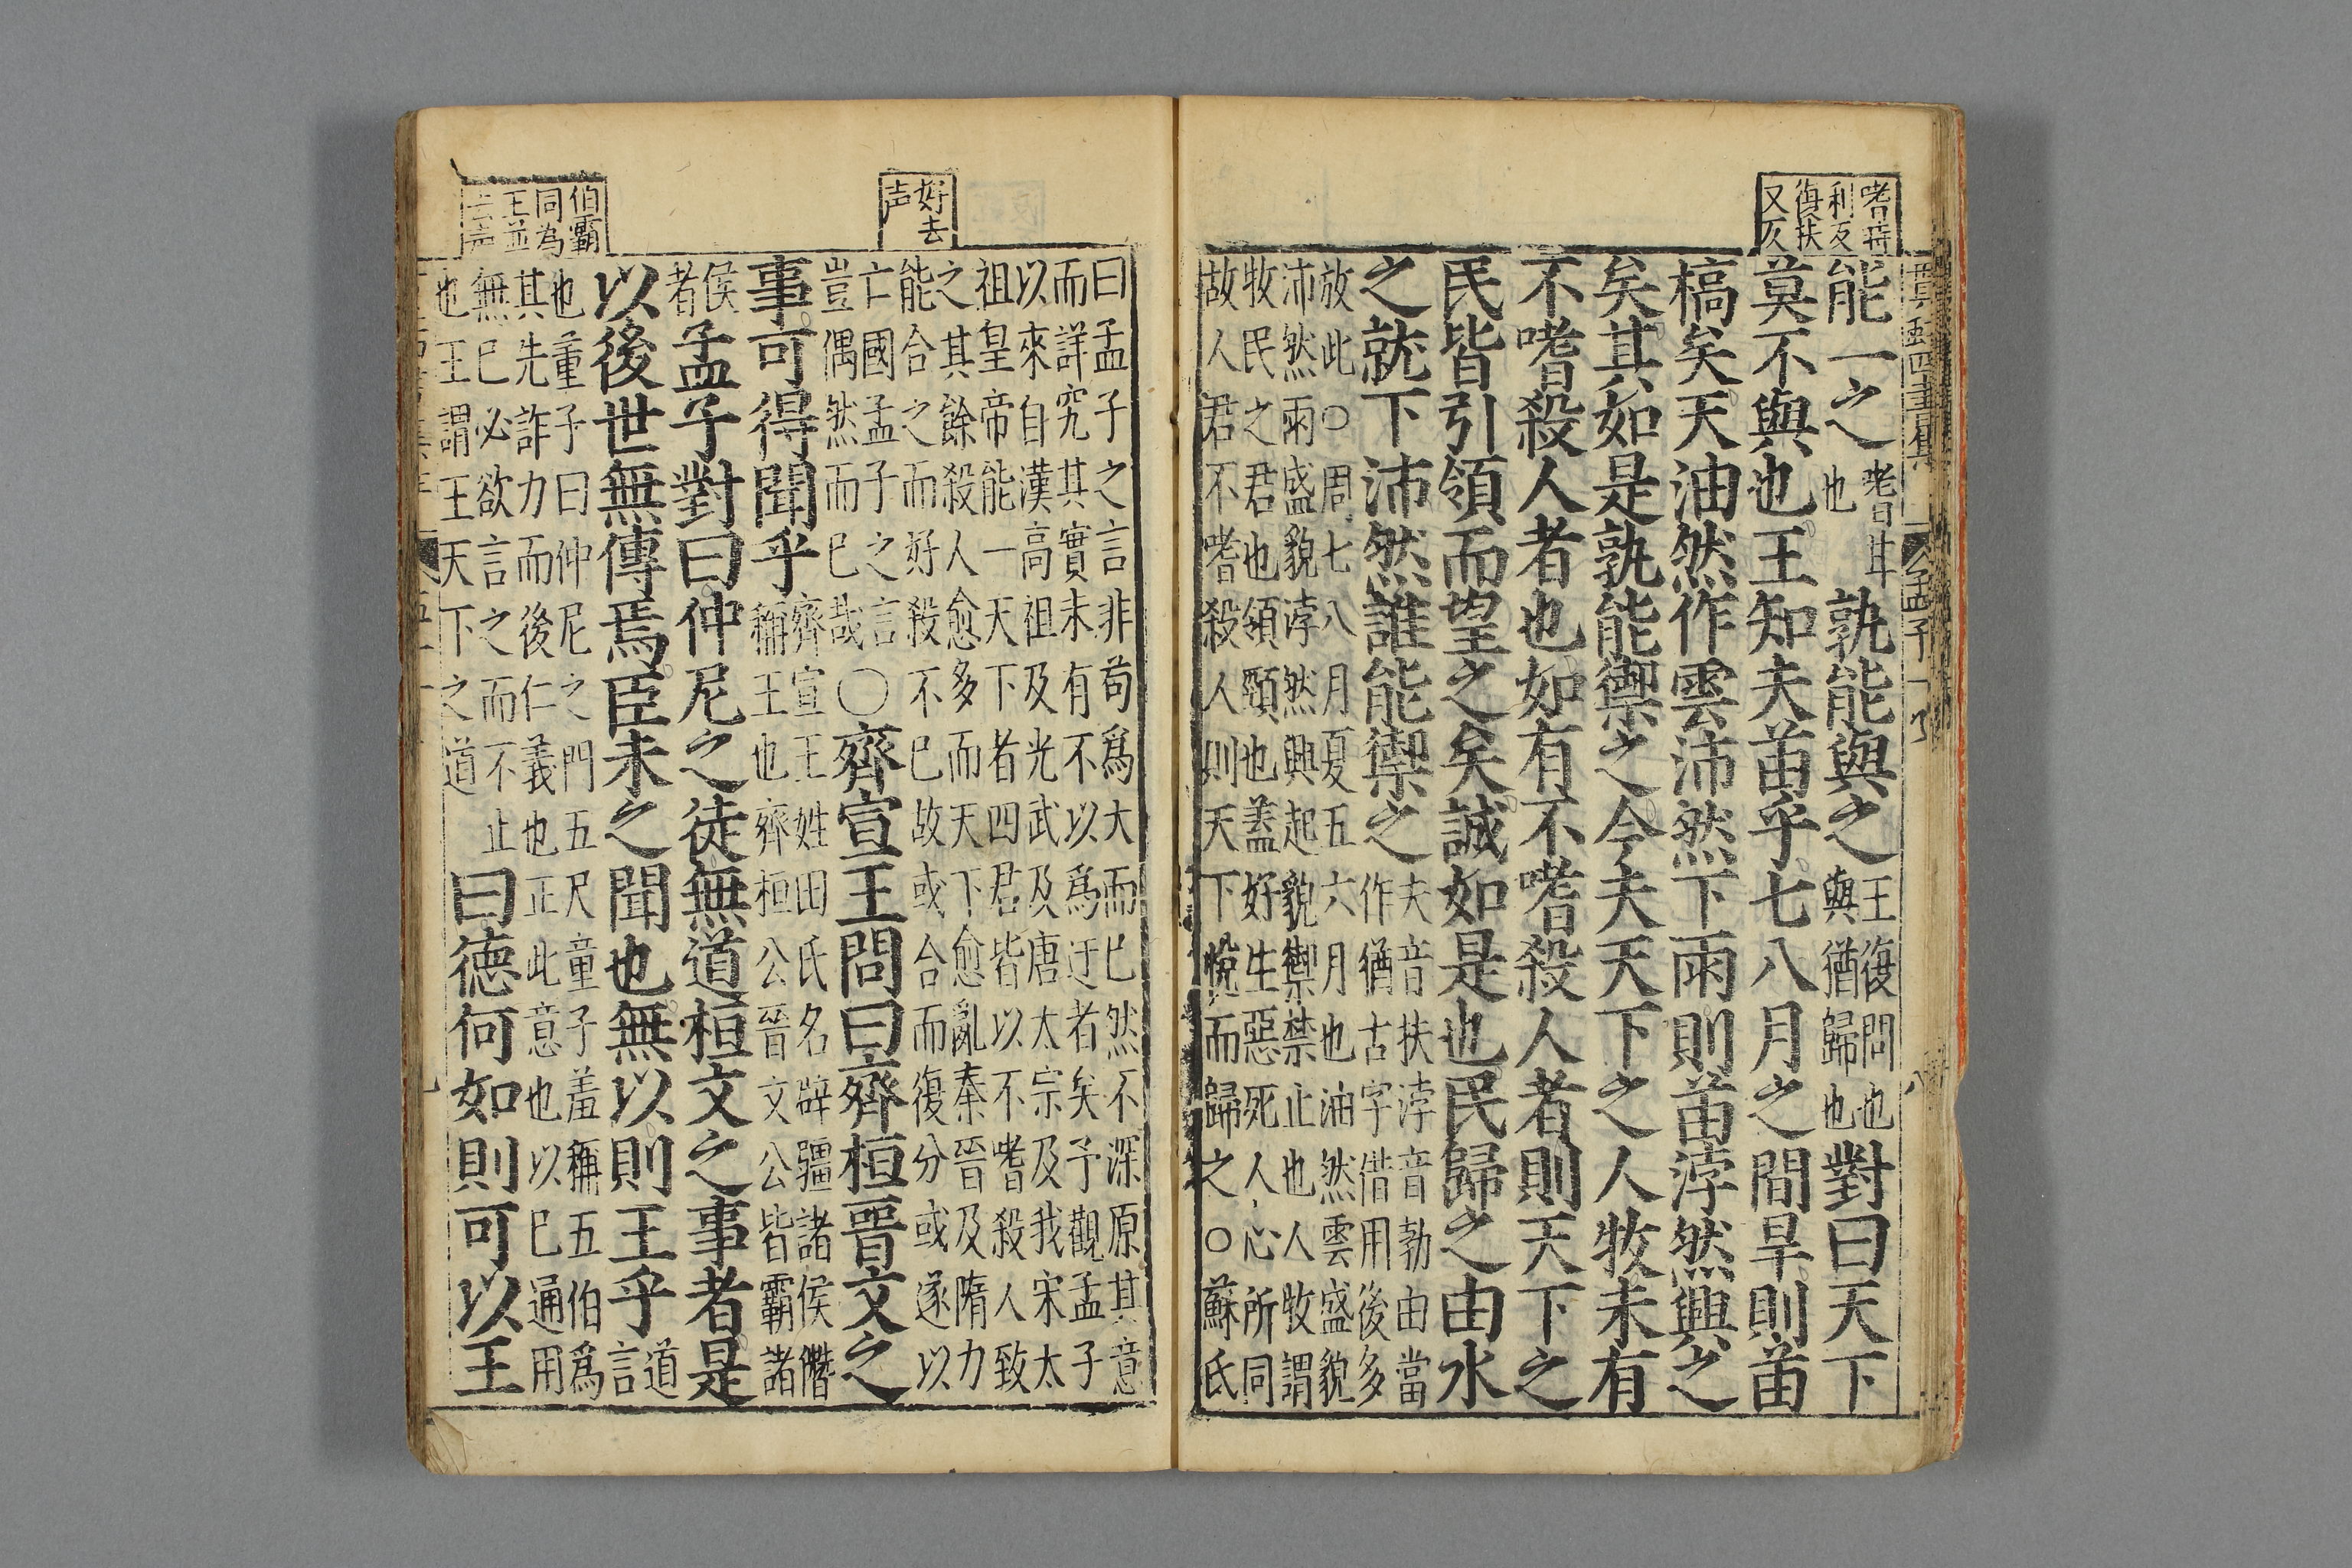 嗜時
利反
復扶
又反
孟子
八
能一之嗜甘也孰能與之王復問也與猶歸也對曰天下
莫不與也王知夫苗乎七八月之間旱則苗
槁矣天油然作雲沛然下雨則苗浡然興之
矣其如是孰能禦之今夫天下之人牧未有
不嗜殺人者也如有不嗜殺人者則天下之
民皆引領而望之矣誠如是也民歸之由水
之就下沛然誰能禦之夫音扶浡音勃由當作猶古字借用後多
放此○周七八月夏五六月也油然雲盛貌
沛然雨盛貌浡然興起貌禦禁止也人牧謂
牧民之君也領頸也蓋好生惡死人心所同
故人君不嗜殺人則天下悅而歸之○蘇氏
好去
声
伯霸
同為
王並
去声
曰孟子之言非苟爲大而已然不深原其意
而詳究其實未有不以爲迂者矣予觀孟子
以來自漢高祖及光武及唐太宗及我宋太
祖皇帝能一天下者四君皆以不嗜殺人致
之其餘殺人愈多而天下愈亂秦晉及隋力
能合之而好殺不已故或合而復分或遂以
亡國孟子之言豈偶然而已哉○齊宣王問曰齊桓晉文之
事可得聞乎齊宣王姓田氏名辟疆諸侯僭稱王也齊桓公晉文公皆霸諸
侯者孟子對曰仲尼之徒無道桓文之事者是
以後世無傳焉臣未之聞也無以則王乎道言
也董子曰仲尼之門五尺童子羞稱五伯爲
其先詐力而後仁義也正此意也以已通用
無已必欲言之而不止也王謂王天下之道曰德何如則可以王